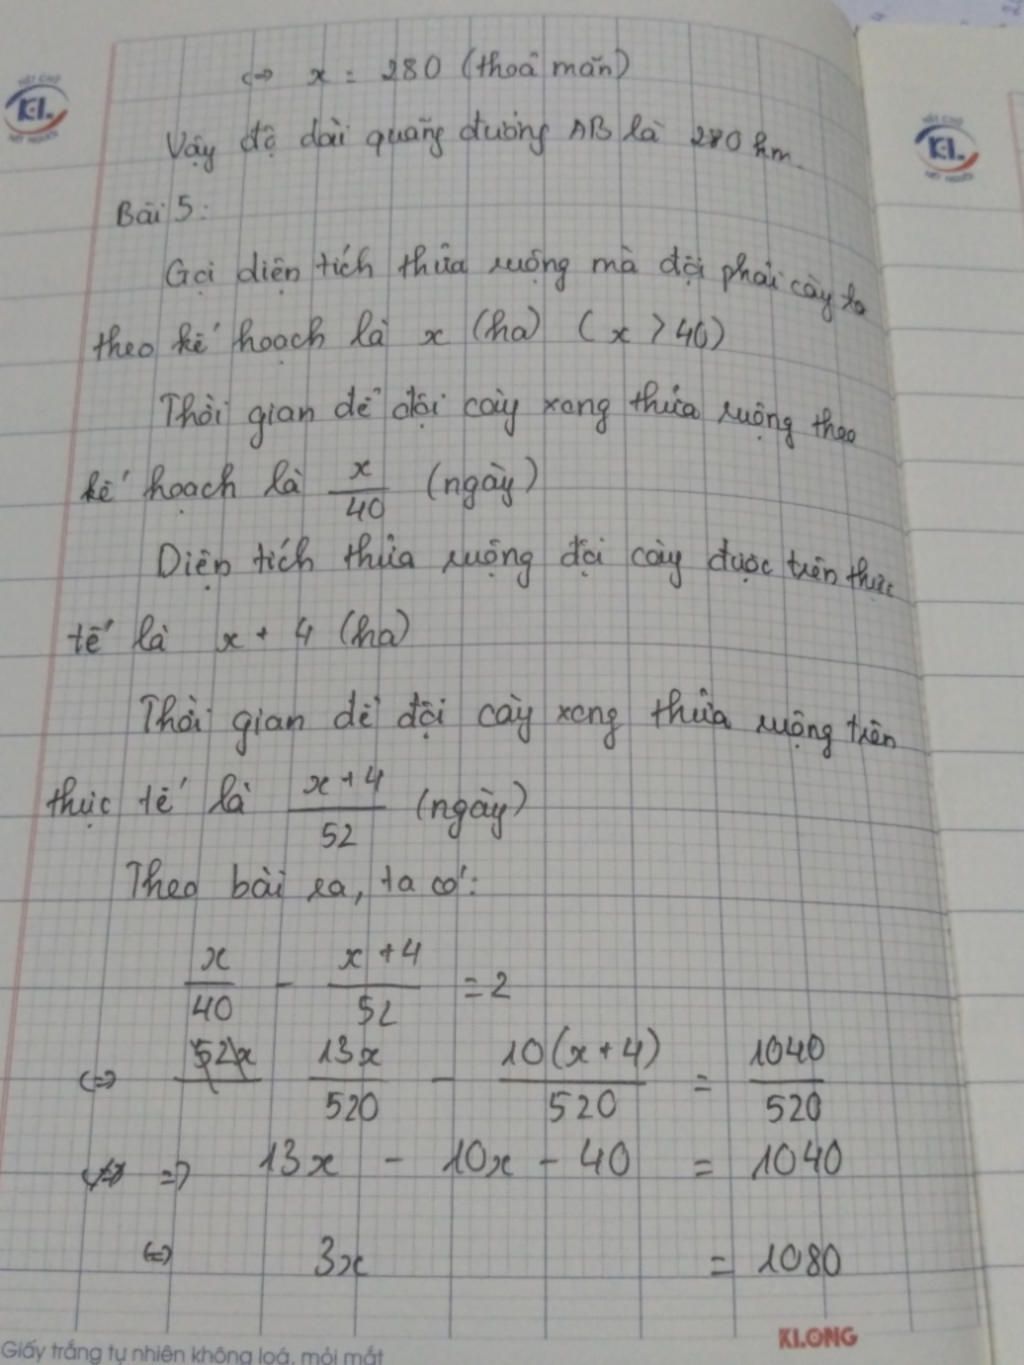 ⇔ x = 280 (thoả mãn)
Vậy độ dài quãng đường AB là 280 km.
Bài 5:
Gọi diện tích thửa ruộng mà đội phải cày
theo kế hoạch là x (ha) (x > 40)
Thời gian để đội cày xong thửa ruộng theo
kế hoạch là x/40 (ngày)
Diện tích thửa ruộng đội cày được trên thực
tế là x + 4 (ha)
Thời gian để đội cày xong thửa ruộng trên
thực tế là (x + 4)/52 (ngày)
Theo bài ra, ta có:
x/40 - (x + 4)/52 = 2
⇔ 13x/520 - 10(x + 4)/520 = 1040/520
⇒ 13x - 10x - 40 = 1040
⇔ 3x = 1080
KLONG
Giấy trắng tự nhiên không loá, mỏi mắt